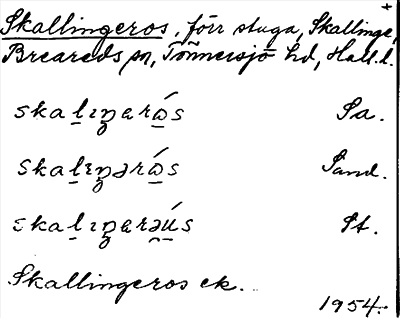 +
Skallingeros, förr stuga, Skallinge,
Breareds sn, Tönnersjö hd, Hall. l.
skalıŋɐrɷ́s Sa.
skalɪŋərɷ́s Sand.
skalıŋɐrəú̯s St.
Skallingeros ek.
1954.